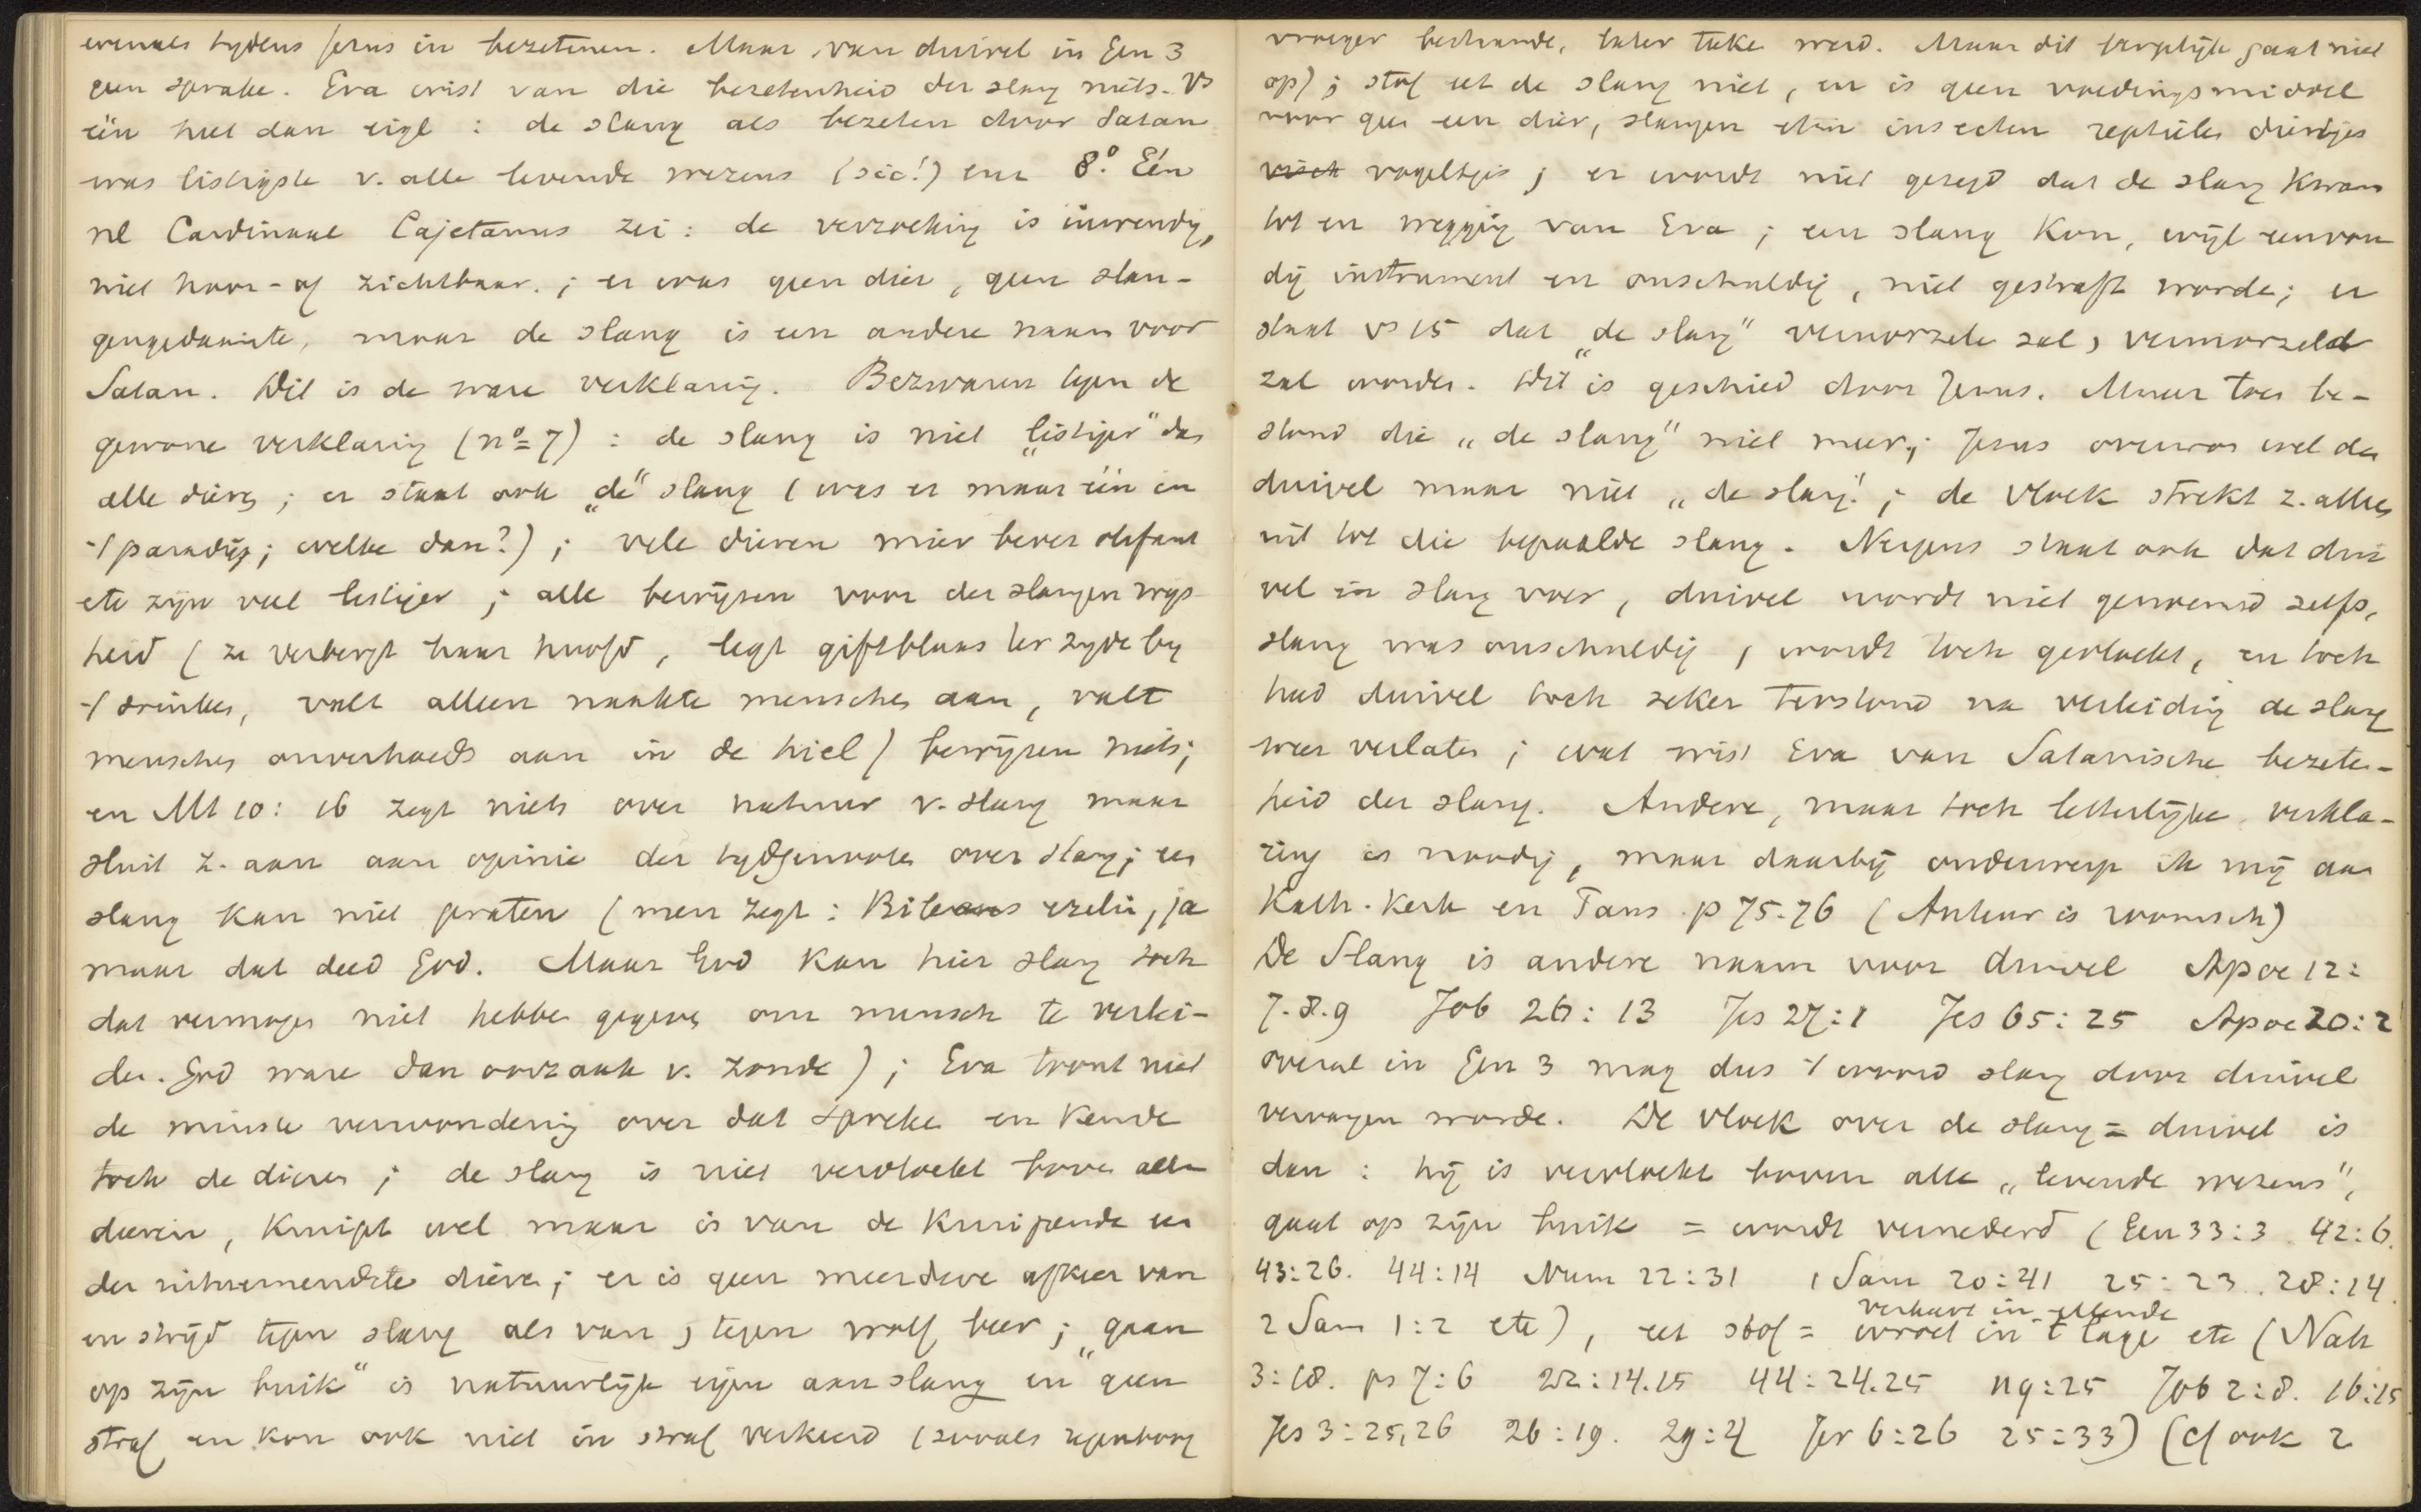 evenals tydens Jesus in bezetenen. Maar van duivel in Gen 3
geen sprake. Eva wist van die bezetenheid der slang niets. Vs
één hiel dan eigl : de slang als bezeten door Satan
was listigste v. alle levende wezens (sic!) enz 8.° Eén
nl Cardinaal Cajetanus zei : de verzoeking is inwendig,
niet hoor- of zichtbaar. ; er was geen dier, geen slan-
gengedaante, maar de slang is een andere naam voor
Satan. Dit is de ware verklaring. Bezwaren tegen de
gewone verklaring (n° 7) : de slang is niet „listiger" dan
alle dieren ; er staat ook „de" slang (was er maar één in
't paradijs; welke dan?) ; vele dieren mier bever olifant
etc zijn veel listiger ; alle bewijzen voor der slangen wijs
heid (ze verbergt haar hoofd, legt gifblaas ter zyde by
't drinken, valt alleen naakte menschen aan, valt
menschen onverhoeds aan in de hiel) bewijzen niets;
en Mt 10: 16 zegt niets over natuur v. slang maar
sluit z. aan aan opinie der tydgenooten over slang; een
slang kan niet praten (men zegt : Bileams ezelin, ja
maar dat deed God. Maar God kan hier slang toch
dat vermogen niet hebben gegeven om mensch te verlei-
den. God ware dan oorzaak v. zonde) ; Eva toont niet
de minste verwondering over dat spreken en kende
toch de dieren ; de slang is niet vervloekt boven alle
dieren, kruipt wel maar is van de kruipende een
der uitnemendste dieren ; er is geen meerdere afkeer van
en strijd tegen slang als van, tegen wolf, beer ; „gaan
op zijn buik" is natuurlijk eigen aan slang en geen
straf en kon ook niet in straf verkeerd (zooals regenboog
vroeger bestaande, later teken werd. Maar dit vergelijk gaat niet
op) ; stof eet de slang niet, en is geen voedingsmiddel
voor geen een dier, slangen eten insecten reptielen diertjes
visch vogeltjes ; er wordt niet gezegd dat de slang kwam
tot en wegging van Eva ; een slang kon, wijl eenvou
dig instrument en onschuldig, niet gestraft worden ; er
staat vs 15 dat „de slang" vermorzelen zal, vermorzeld
zal worden. Dit is geschied door Jezus. Maar toen be-
stond die „de slang" niet meer; Jezus overwon wel den
duivel maar niet „de slang" ; de vloek strekt z. alleen
uit tot die bepaalde slang. Nergens staat ook dat dui
vel in slang voer, duivel wordt niet genoemd zelfs,
slang was onschuldig, wordt toch gevloekt, en toch
had duivel toch zeker terstond na verleiding de slang
weer verlaten ; wat wist Eva van Satanische bezeten-
heid der slang. Andere, maar toch letterlijke verkla-
ring is noodig, maar daarbij onderwerp ik mij aan
Kath. Kerk en Paus p 75-76 (Auteur is roomsch)
De Slang is andere naam voor duivel Apoc 12:
7.8.9 Job 26: 13 Jes 27:1 Jes 65: 25 Apoc 20: 2
overal in Gen 3 mag dus 't woord slang door duivel
vervangen worden. De vloek over de slang = duivel is
dan : hij is vervloekt boven alle „levende wezens",
gaat op zijn buik = wordt vernederd (Gen 33:3 42:6.
43:26. 44:14 Num 22:31 1 Sam 20:41 25:23. 28:14.
verkeert in ellende
2 Sam 1:2 etc), eet stof = wroet in 't lage etc (Nah
3:18. ps 7:6 22:14.15 44:24.25 119:25 Job 2:8. 16:15
Jes 3:25,26 26:19. 29:4 Jer 6:26 25:33) (cf ook 2